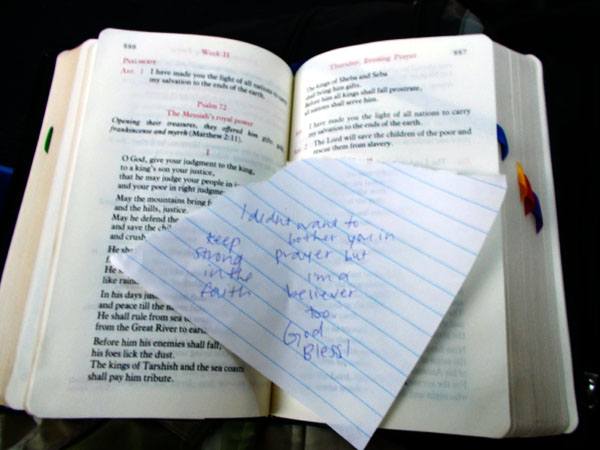 Week II
PSALMODY
Ant. 1 I have made you the light of all nations to carry
my salvation to the ends of the earth.
Psalm 72
The Messiah's royal power
Opening their treasures, they offered him gifts
frankincense and myrrh (Matthew 2:11).
I
O God, give your judgment to the king,
to a king's son your justice,
that he may judge your people in
and your poor in right judgment
May the mountains bring
and the hills, justice.
May he defend the
and save the
and crush
He
He
like
In his days
and peace till the
He shall rule from sea
from the Great River to
Before him his enemies shall fall,
his foes lick the dust.
The kings of Tarshish and the sea coasts
shall pay him tribute.
Thursday, Evening Prayer
The kings of Sheba and Seba
shall bring him gifts.
Before him all kings shall fall prostrate,
all nations shall serve him.
Ant. I have made you the light of all nations to carry
my salvation to the ends of the earth.
Ant. 2 The Lord will save the children of the poor and
rescue them from slavery.
I didn't want to
bother you in
prayer but
I'm a
believer
too.
God
Bless!
Keep
strong
in the
faith